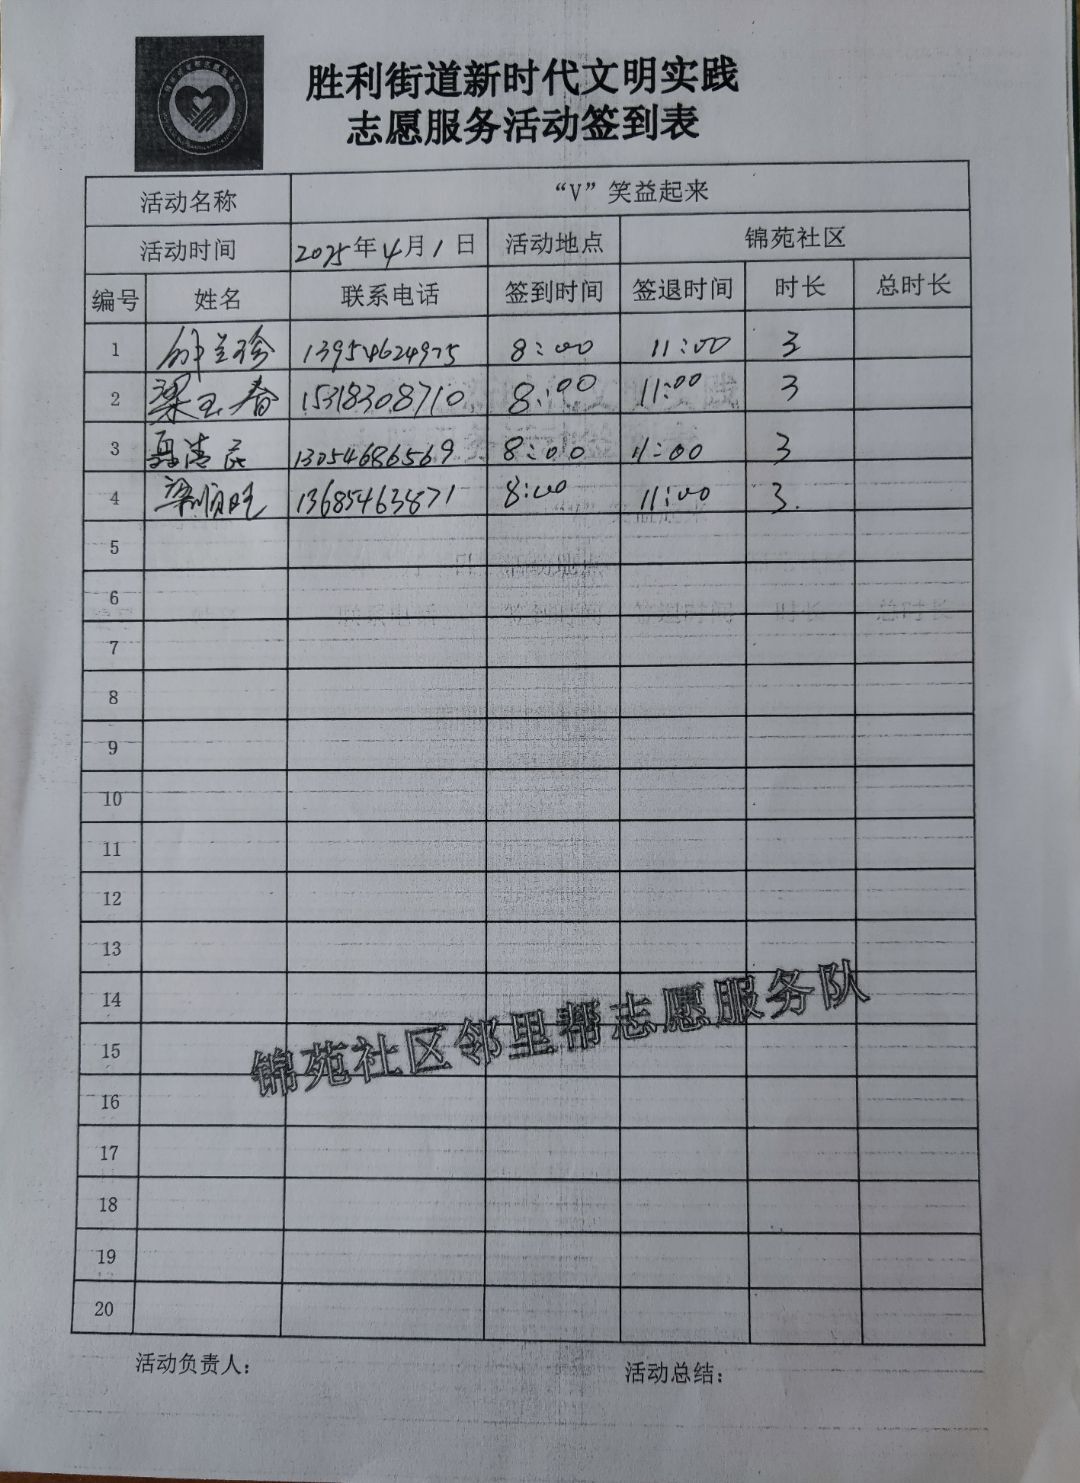 胜利街道新时代文明实践
志愿服务活动签到表
活动名称 “V”笑益起来
活动时间 2025年4月1日 活动地点 锦苑社区
编号 姓名 联系电话 签到时间 签退时间 时长 总时长
1 兰珍 13954624975 8:00 11:00 3
2 梁玉春 15318308710 8:00 11:00 3
3 聂清民 13054686569 8:00 11:00 3
4 梁顺旺 8:00 11:00 3.
5
6
7
8
9
10
11
12
13
14
15
锦苑社区邻里帮志愿服务队
16
17
18
19
20
活动负责人: 活动总结: